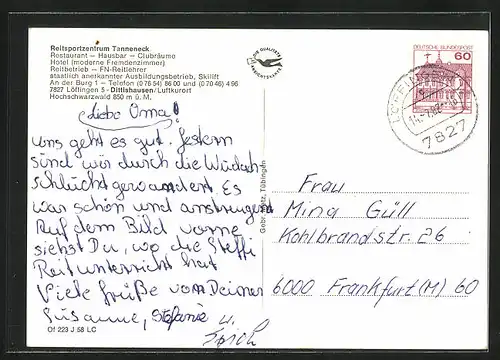 Reitsportzentrum Tanneneck
Restaurant — Hausbar — Clubräume
Hotel (moderne Fremdenzimmer)
Reitbetrieb — FN-Reitlehrer
staatlich anerkannter Ausbildungsbetrieb, Skilift
An der Burg 1 — Telefon (0 76 54) 86 00 und (0 70 46) 4 96
7827 Löffingen 5 - Dittishausen/Luftkurort
Hochschwarzwald 850 m ü. M.
DIE QUALITÄTS
ANSICHTSKARTE
DEUTSCHE BUNDESPOST
60
LÖFFINGEN
7827
Liebe Oma!
uns geht es gut, gestern
sind wir durch die Wutach-
schlucht gewandert. Es
war schön und anstrengend
Auf dem Bild vorne
siehst Du, wo die Steffi
Reitunterricht hat
Viele Grüße von Deiner
Susanne, Stefanie
u.
Gebr. Metz, Tübingen
Frau
Mina Güll
Kohlbrandstr. 26
6000 Frankfurt (M) 60
Of 223 J 58 LC